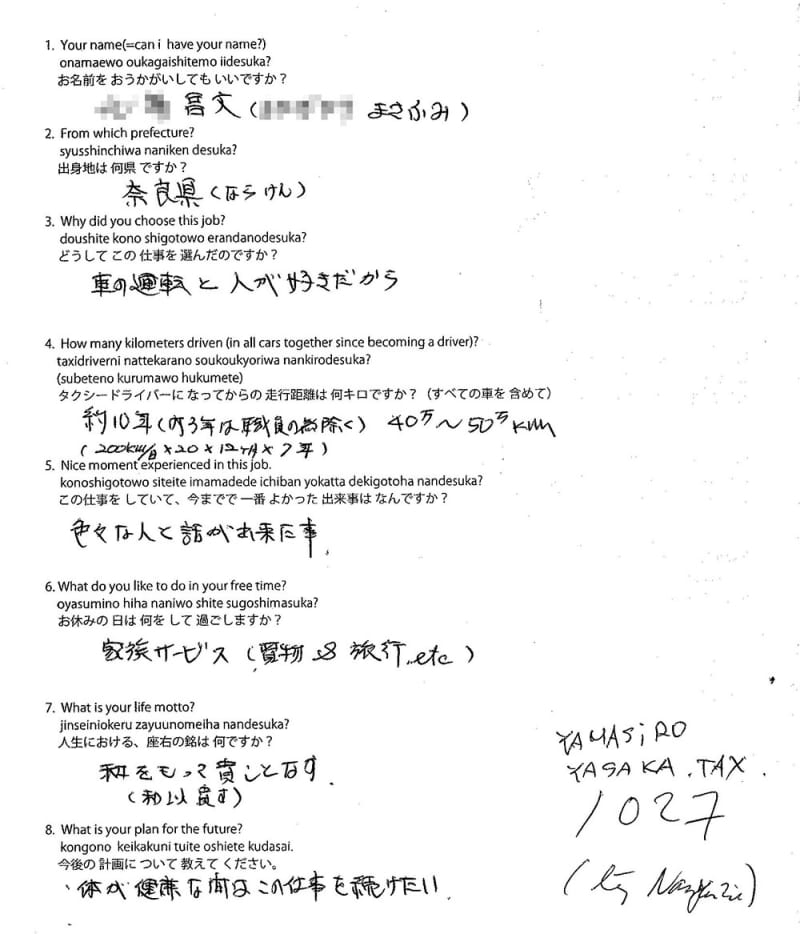 1. Your name(=can i have your name?)
onamaewo oukagaishitemo iidesuka?
お名前を おうかがいしても いいですか？
昌文 ( まさふみ )
2. From which prefecture?
syusshinchiwa naniken desuka?
出身地は 何県 ですか？
奈良県 (ならけん)
3. Why did you choose this job?
doushite kono shigotowo erandanodesuka?
どうして この 仕事を 選んだのですか？
車の運転と人が好きだから
4. How many kilometers driven (in all cars together since becoming a driver)?
taxidriverni nattekarano soukoukyoriwa nankirodesuka?
(subeteno kurumawo hukumete)
タクシードライバーに なってからの 走行距離は 何キロですか？（すべての車を 含めて）
約10年(内3年は職員の為除く) 40万～50万km
(200km/日×20×12ヶ月×7年)
5. Nice moment experienced in this job.
konoshigotowo siteite imamadede ichiban yokatta dekigotoha nandesuka?
この仕事を していて、今までで 一番 よかった 出来事は なんですか？
色々な人と話が出来た事.
6. What do you like to do in your free time?
oyasumino hiha naniwo shite sugoshimasuka?
お休みの 日は 何を して 過ごしますか？
家族サービス (買物 & 旅行,etc)
7. What is your life motto?
jinseiniokeru zayuunomeiha nandesuka?
人生における、座右の銘は 何ですか？
和をもって貴しとなす.
(和以貴す)
YAMASiRO
YASAKA.TAX.
1027
8. What is your plan for the future?
kongono keikakuni tuite oshiete kudasai.
今後の 計画に ついて 教えて ください。
・体が健康な内はこの仕事を続けたい.